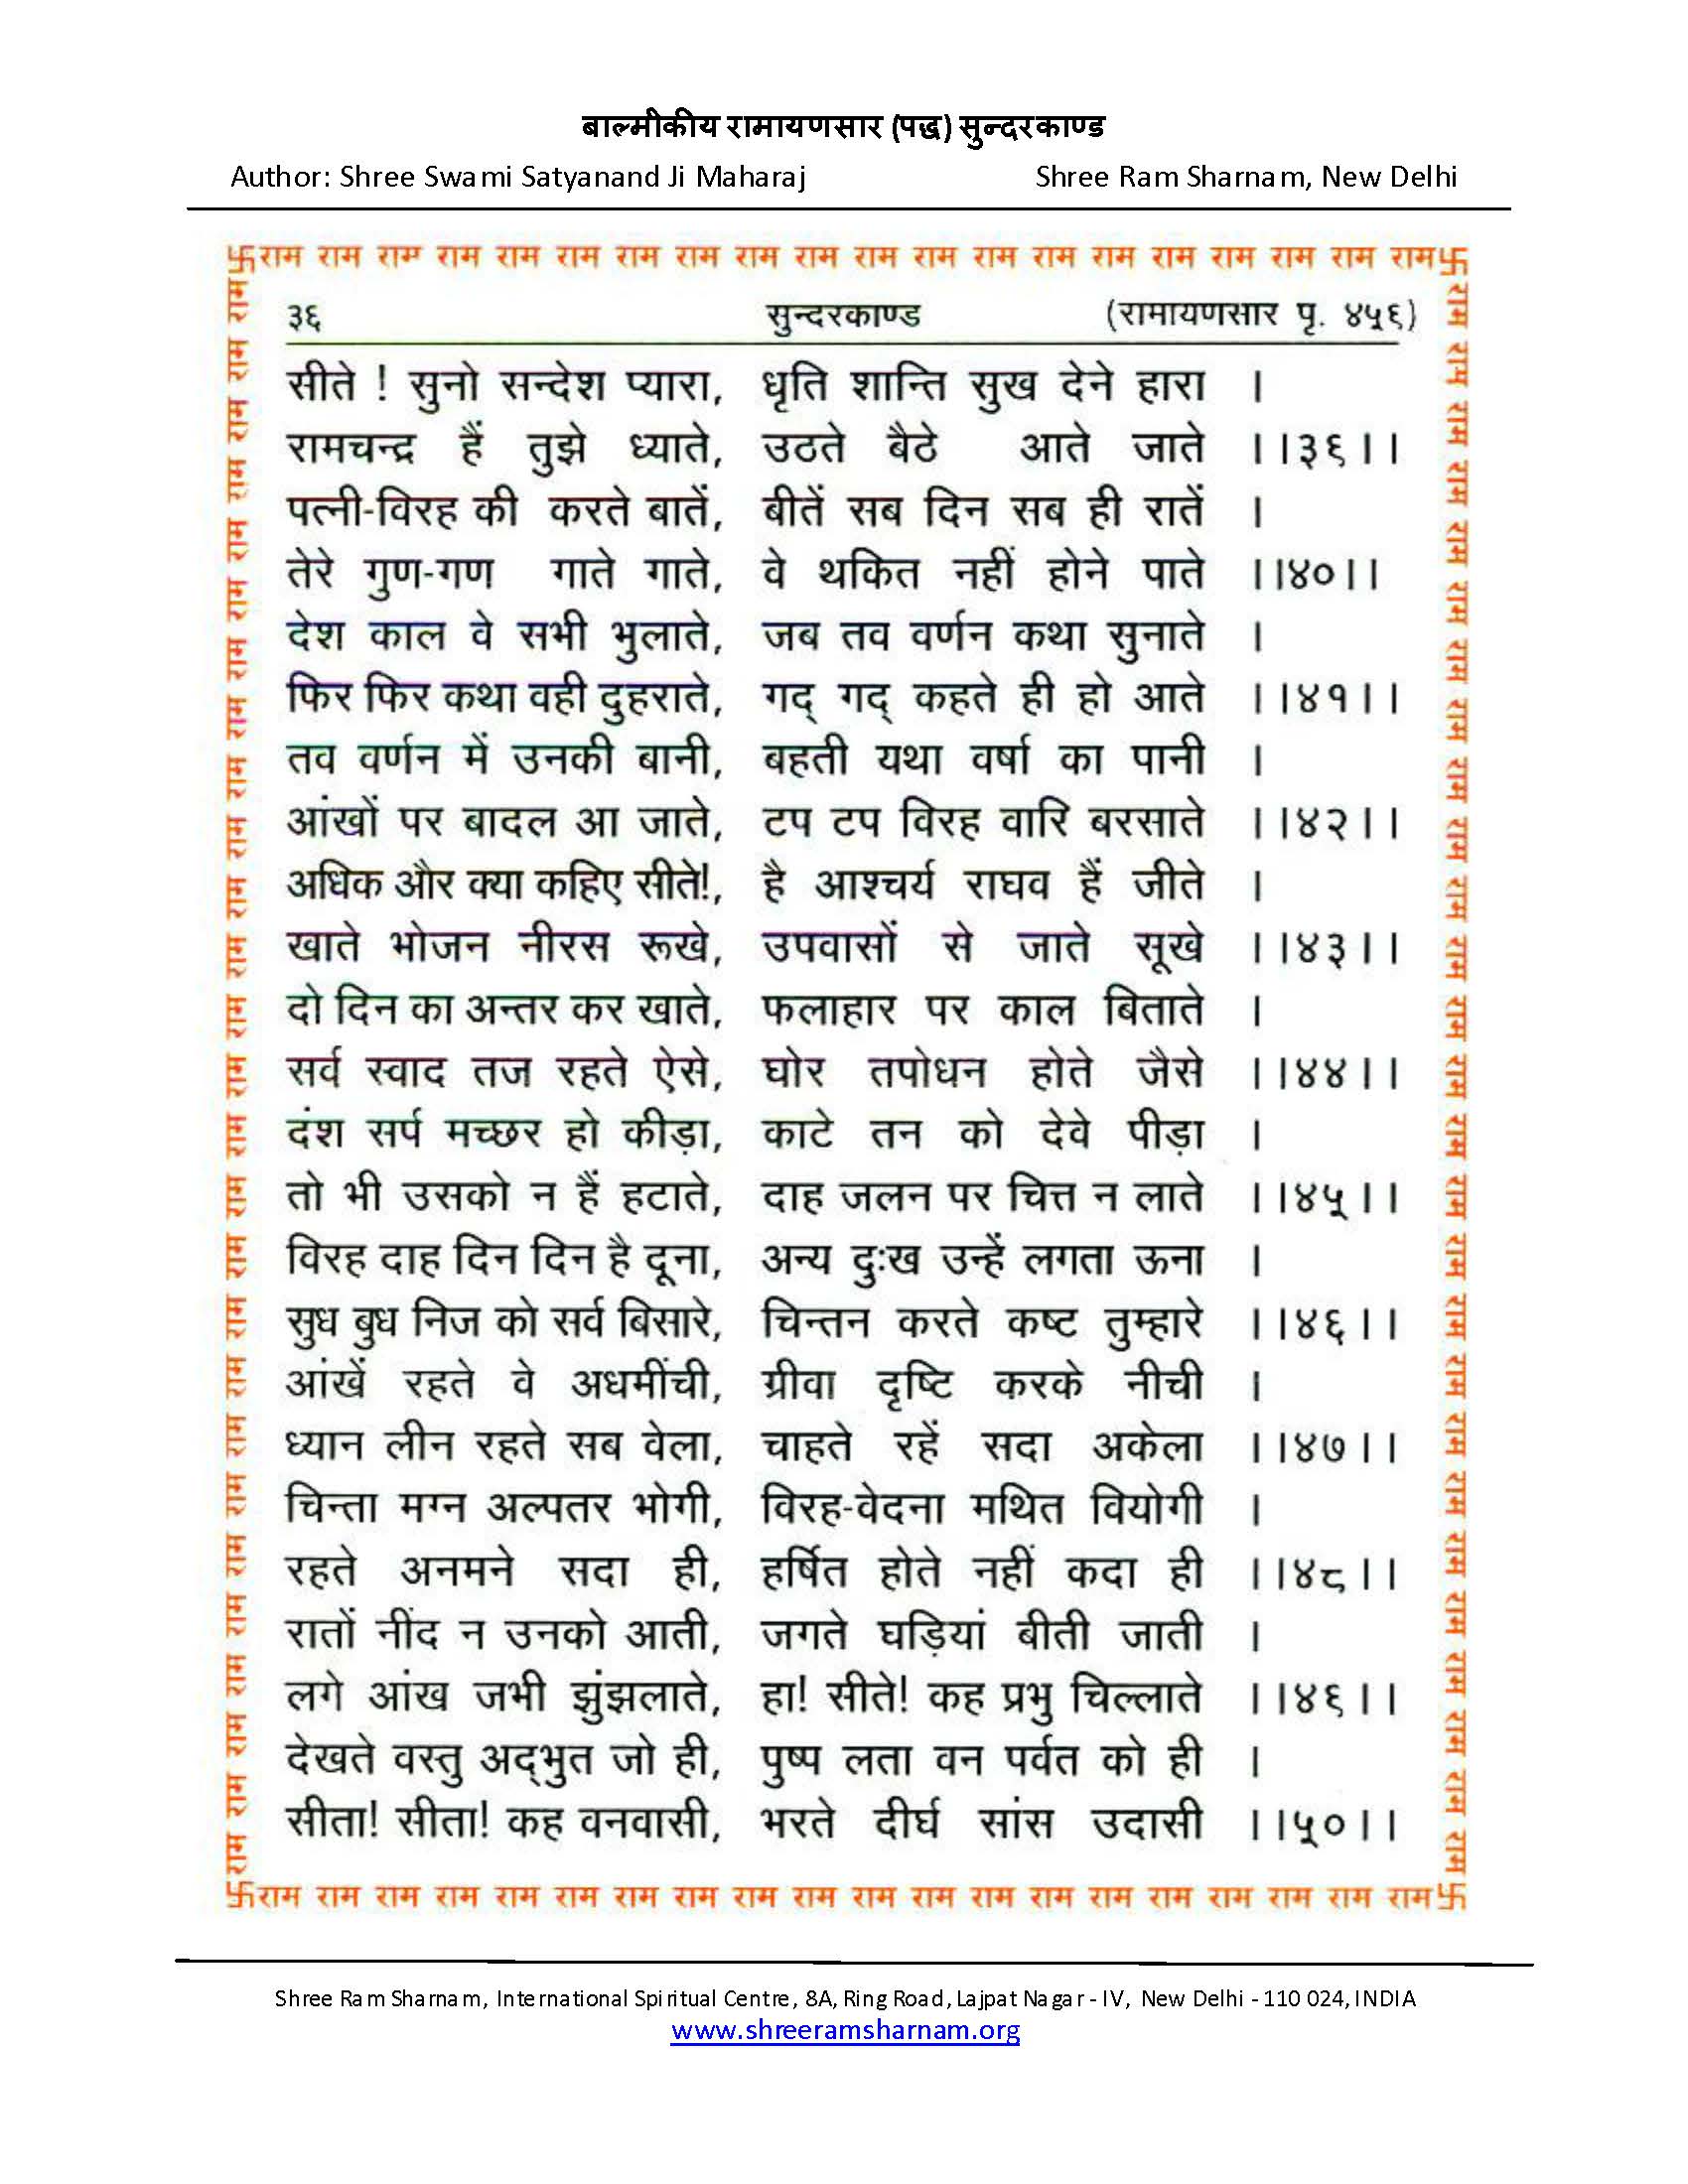 बाल्मीकीय रामायणसार (पद्ध) सुन्दरकाण्ड
Author: Shree Swami Satyanand Ji Maharaj Shree Ram Sharnam, New Delhi
卐राम राम राम राम राम राम राम राम राम राम राम राम राम राम राम राम राम राम राम राम卐
३६ सुन्दरकाण्ड (रामायणसार पृ. ४५६)
सीते ! सुनो सन्देश प्यारा, धृति शान्ति सुख देने हारा ।
रामचन्द्र हैं तुझे ध्याते, उठते बैठे आते जाते ।।३९।।
पत्नी-विरह की करते बातें, बीतें सब दिन सब ही रातें ।
तेरे गुण-गण गाते गाते, वे थकित नहीं होने पाते ।।४०।।
देश काल वे सभी भुलाते, जब तव वर्णन कथा सुनाते ।
फिर फिर कथा वही दुहराते, गद् गद् कहते ही हो आते ।।४१।।
तव वर्णन में उनकी बानी, बहती यथा वर्षा का पानी ।
आंखों पर बादल आ जाते, टप टप विरह वारि बरसाते ।।४२।।
अधिक और क्या कहिए सीते!, है आश्चर्य राघव हैं जीते ।
खाते भोजन नीरस रूखे, उपवासों से जाते सूखे ।।४३।।
दो दिन का अन्तर कर खाते, फलाहार पर काल बिताते ।
सर्व स्वाद तज रहते ऐसे, घोर तपोधन होते जैसे ।।४४।।
दंश सर्प मच्छर हो कीड़ा, काटे तन को देवे पीड़ा ।
तो भी उसको न हैं हटाते, दाह जलन पर चित्त न लाते ।।४५।।
विरह दाह दिन दिन है दूना, अन्य दुःख उन्हें लगता ऊना ।
सुध बुध निज को सर्व बिसारे, चिन्तन करते कष्ट तुम्हारे ।।४६।।
आंखें रहते वे अधमींची, ग्रीवा दृष्टि करके नीची ।
ध्यान लीन रहते सब वेला, चाहते रहें सदा अकेला ।।४७।।
चिन्ता मग्न अल्पतर भोगी, विरह-वेदना मथित वियोगी ।
रहते अनमने सदा ही, हर्षित होते नहीं कदा ही ।।४८।।
रातों नींद न उनको आती, जगते घड़ियां बीती जाती ।
लगे आंख जभी झुंझलाते, हा! सीते! कह प्रभु चिल्लाते ।।४९।।
देखते वस्तु अद्भुत जो ही, पुष्प लता वन पर्वत को ही ।
सीता! सीता! कह वनवासी, भरते दीर्घ सांस उदासी ।।५०।।
राम राम राम राम राम राम राम राम राम राम राम राम राम राम राम राम राम राम राम राम राम राम राम राम राम राम राम
राम राम राम राम राम राम राम राम राम राम राम राम राम राम राम राम राम राम राम राम राम राम राम राम राम राम राम
卐राम राम राम राम राम राम राम राम राम राम राम राम राम राम राम राम राम राम राम राम卐
Shree Ram Sharnam, International Spiritual Centre, 8A, Ring Road, Lajpat Nagar - IV, New Delhi - 110 024, INDIA
www.shreeramsharnam.org